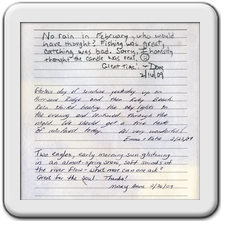 No rain in February, who would
have thought? Fishing was great,
catching was bad. Sorry, I honestly
thought the candle was real.
Great time! - Doug
2/14/09
day of sunshine yesterday up on
Hurricane Ridge and then Ruby Beach.
Rain that was beating the sky lights in
the evening and continued through the
night. We should get a true taste
of rainforest today. All very wonderful!
Emma + Kate 2/22/09
Two eagles, early morning sun glistening
in an almost spring snow, soft sounds of
the river flow - what more can we ask?
Great for the soul. Thanks!
Mary Anne 2/26/09